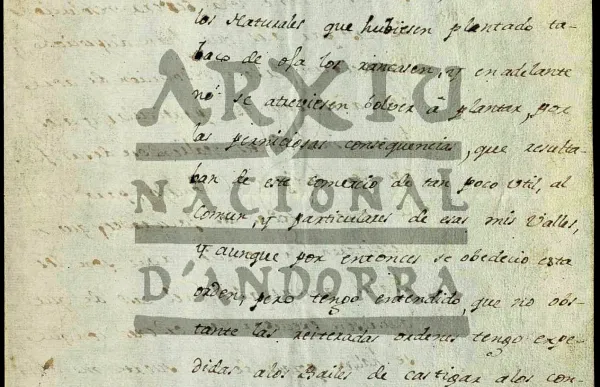 los Naturales que hubiesen plantado ta-
baco de oja los rancasen, y en adelante
no se atreviesen bolver â plantar, por
las perniciosas consequencias, que resulta-
ban de este comercio de tan poco util, al
Comun, y particulares de esas mis Valles,
y aunque por entonces se obedecio esta
orden, pero tengo entendido, que no obs-
tante las reiteradas ordenes tengo expe-
didas a los Bailes de castigar a los con-
ARXIU
NACIONAL
D'ANDORRA